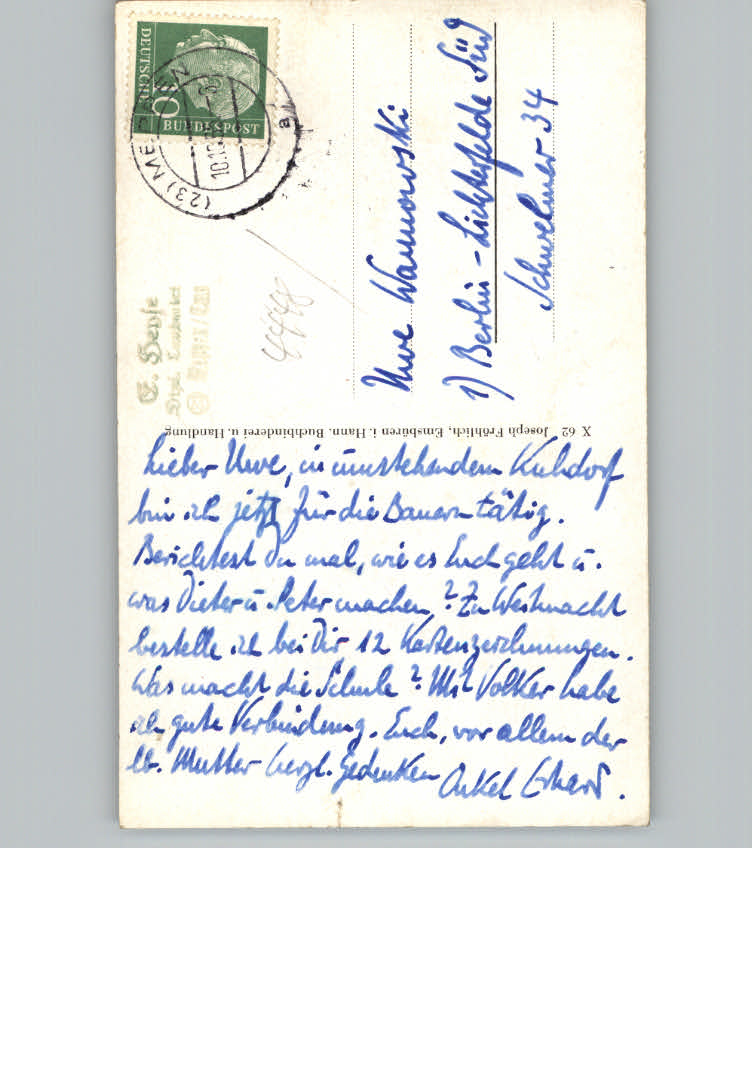 DEUTSCHE
BUNDESPOST
(23) ME
a
Uwe Wannowski
1) Berlin - Lichterfelde Süd
Schwelmer 34
X 62 Joseph Fröhlich, Emsbüren i. Hann. Buchbinderei u. Handlung
Lieber Uwe, in umstehendem Kuhdorf
bin ich jetzt für die Bauern tätig.
Berichtest Du mal, wie es Euch geht u.
was Dieter u. Peter machen? Zu Weihnacht
bestelle ich bei Dir 12 Kartenzeichnungen.
Was macht die Schule? Mit Volker habe
ich gute Verbindung. Euch, vor allem der
lb. Mutter herzl. Gedenken Onkel Erhard.